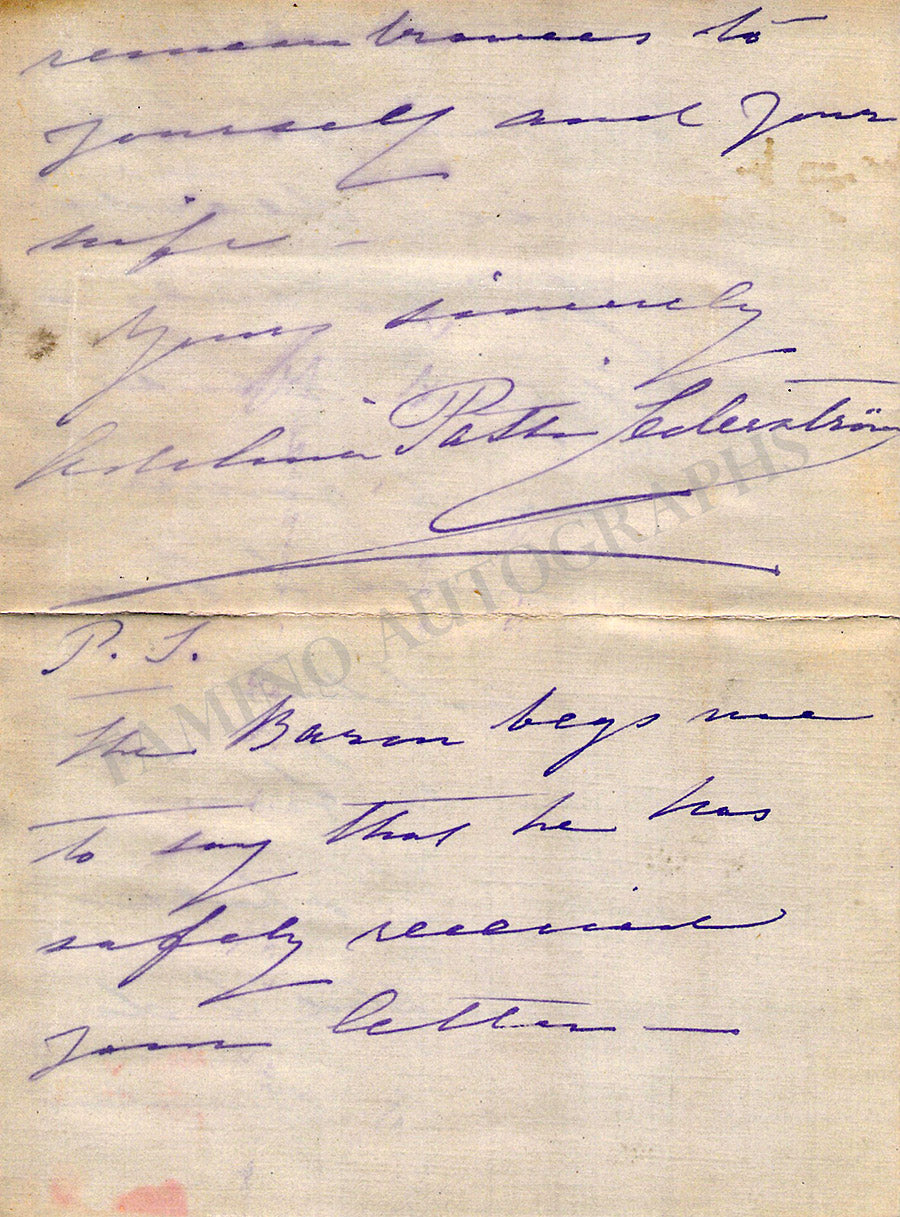 remembrances to
yourself and your
wife –
Yours sincerely
Adelina Patti Cederström
P. S.
The Baron begs me
to say that he has
safely received
your letter —
TAMINO AUTOGRAPHS